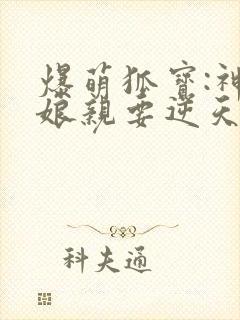 爆萌狐宝:神
娘亲要逆天
科夫通